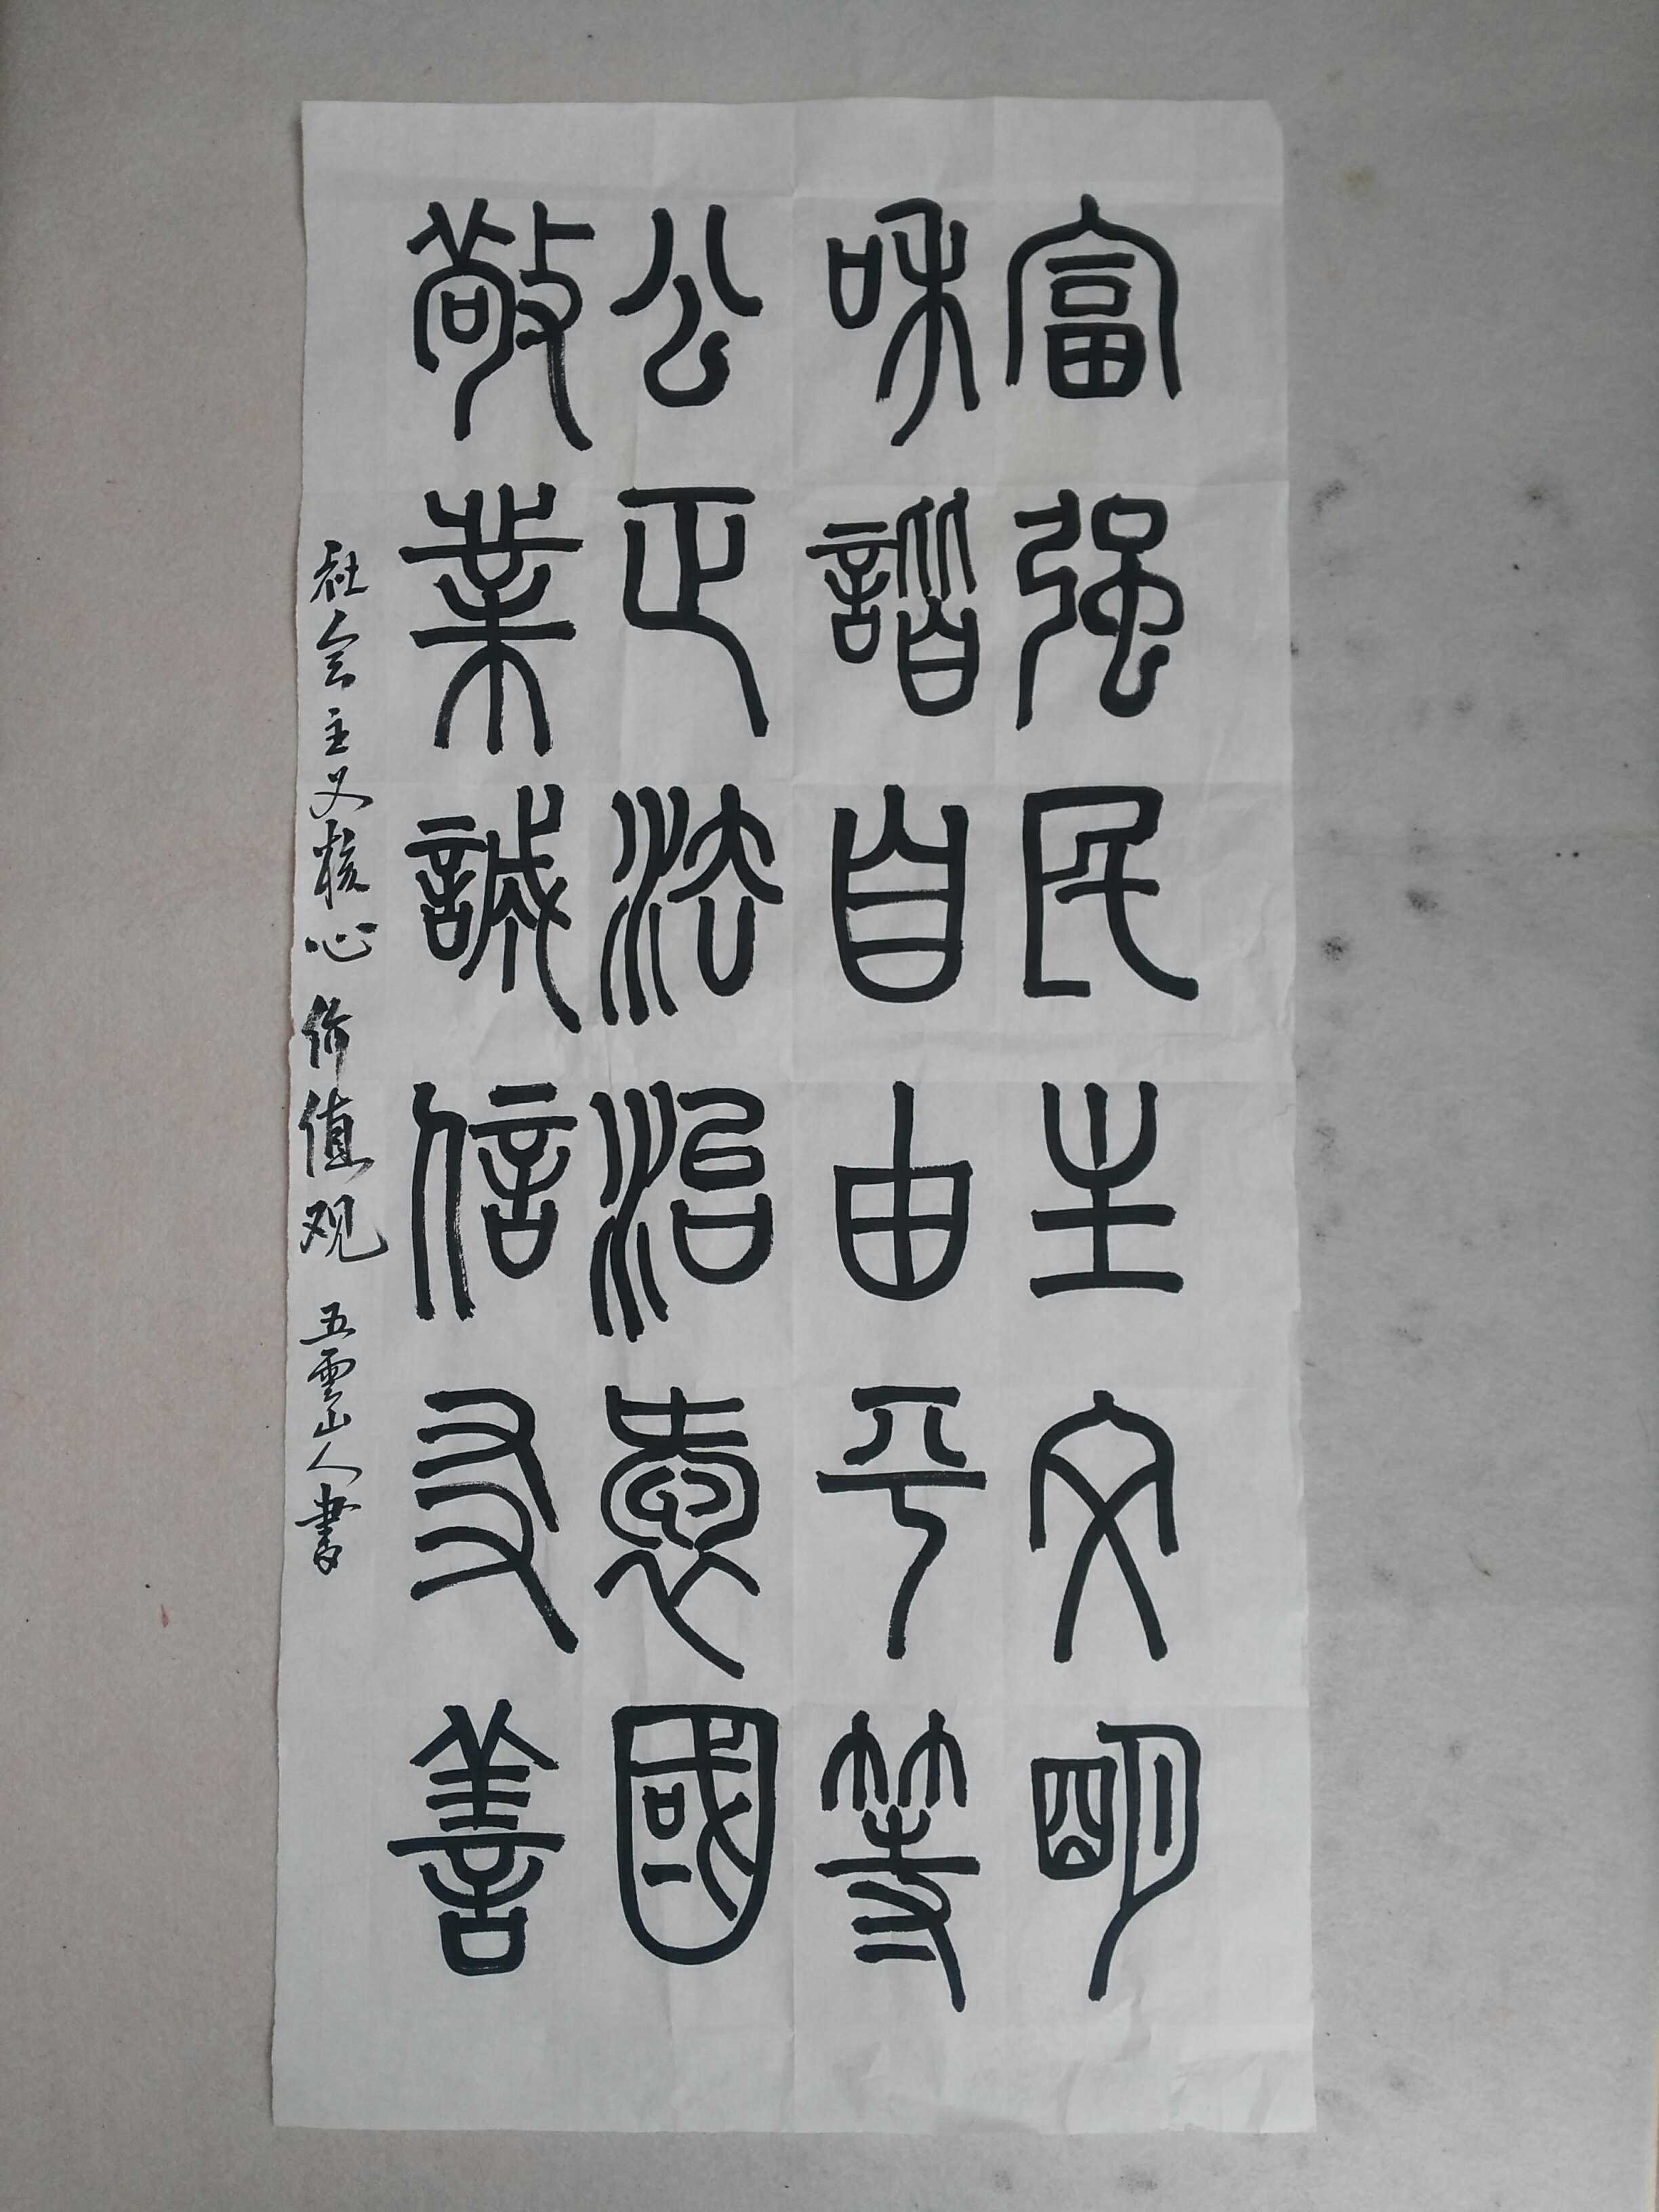 富强民主文明
和諧自由平等
公正法治愛國
敬業誠信友善
社会主义核心价值观 五雲山人書